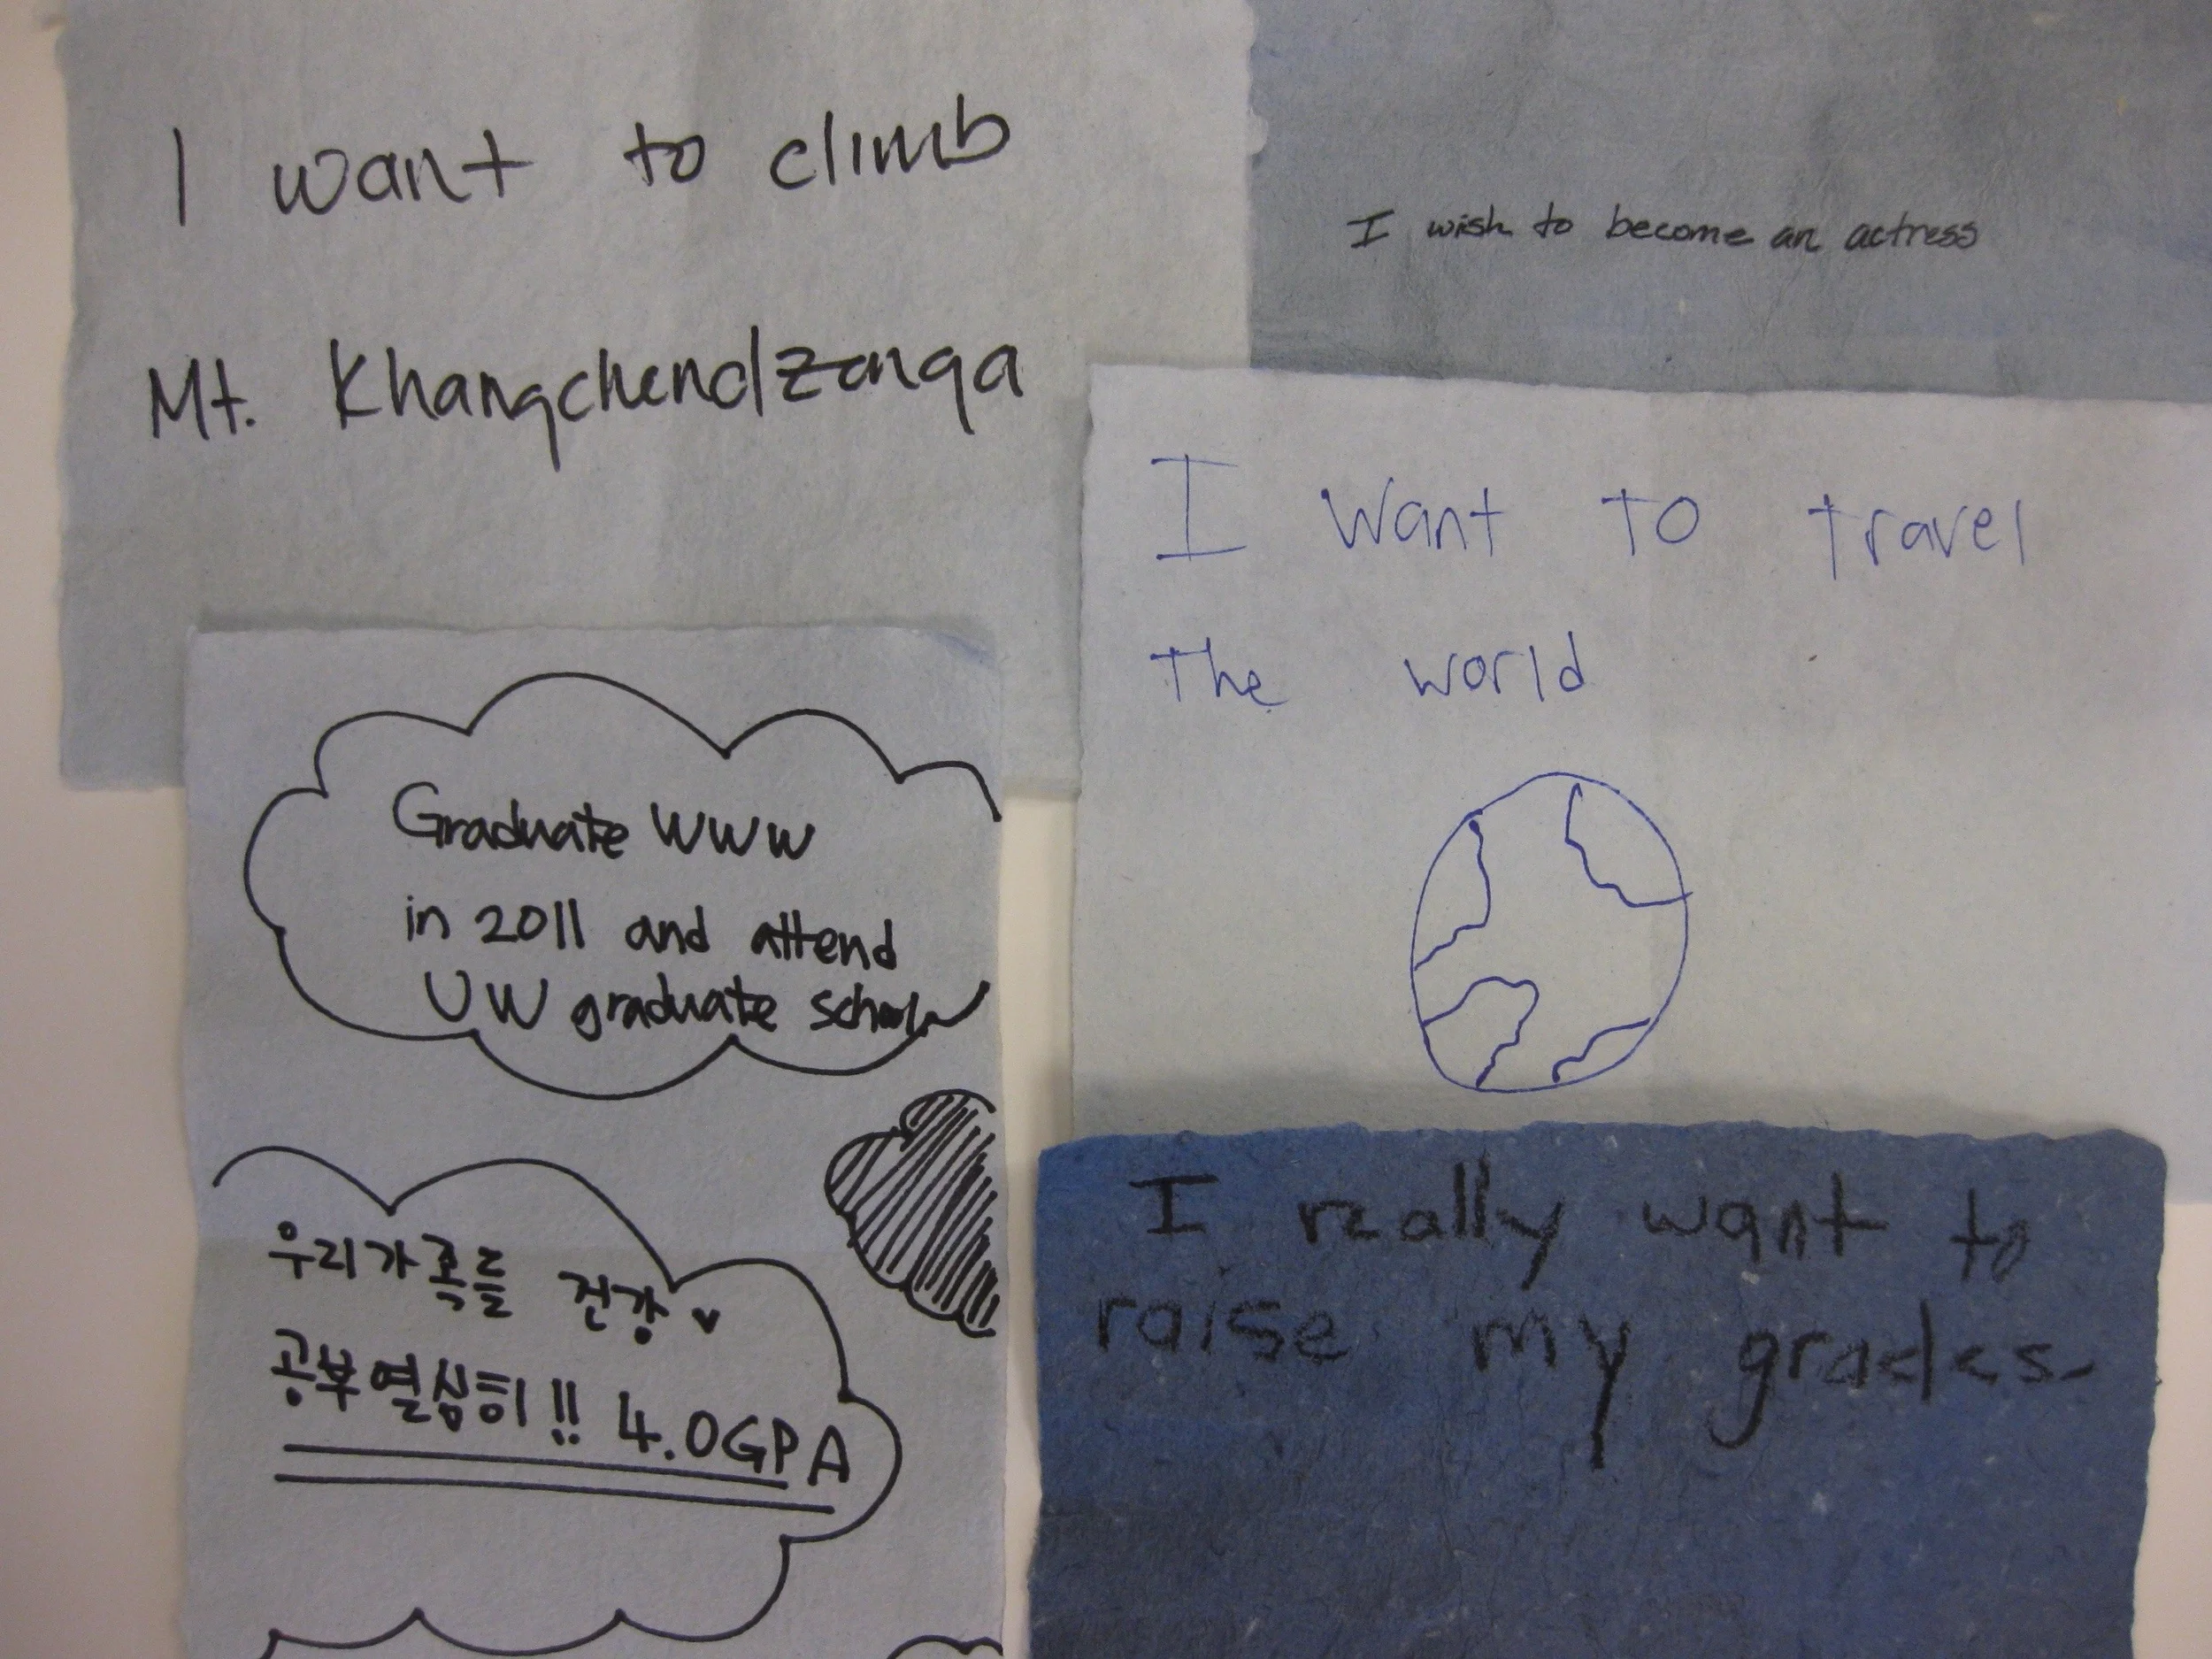 I want to climb
Mt. Khangchendzonga
I wish to become an actress
I want to travel
the world
Graduate WWW
in 2011 and attend
UW graduate school
우리가족들 건강
공부열심히!! 4.0GPA
I really want to
raise my grades.